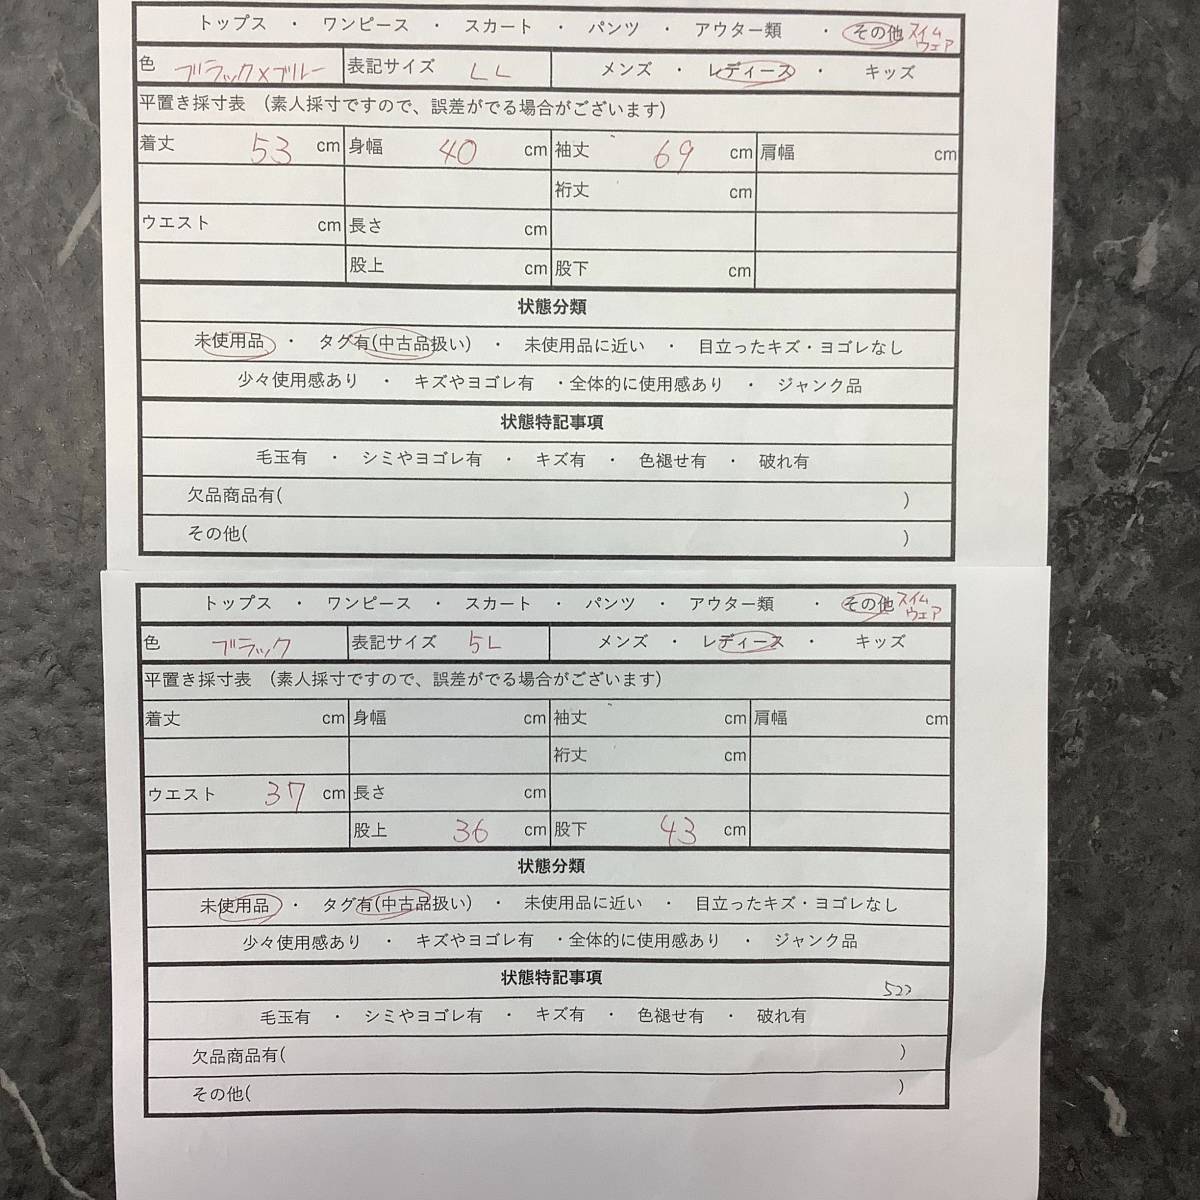 トップス ・ ワンピース ・ スカート ・ パンツ ・ アウター類 ・ その他 スイムウェア
色 ブラック×ブルー 表記サイズ LL メンズ ・ レディース ・ キッズ
平置き採寸表 (素人採寸ですので、誤差がでる場合がございます)
着丈 53 cm 身幅 40 cm 袖丈 69 cm 肩幅 cm
裄丈 cm
ウエスト cm 長さ cm
股上 cm 股下 cm
状態分類
未使用品 ・ タグ有(中古品扱い) ・ 未使用品に近い ・ 目立ったキズ・ヨゴレなし
少々使用感あり ・ キズやヨゴレ有 ・全体的に使用感あり ・ ジャンク品
状態特記事項
毛玉有 ・ シミやヨゴレ有 ・ キズ有 ・ 色褪せ有 ・ 破れ有
欠品商品有( )
その他( )
トップス ・ ワンピース ・ スカート ・ パンツ ・ アウター類 ・ その他 スイムウェア
色 ブラック 表記サイズ 5L メンズ ・ レディース ・ キッズ
平置き採寸表 (素人採寸ですので、誤差がでる場合がございます)
着丈 cm 身幅 cm 袖丈 cm 肩幅 cm
裄丈 cm
ウエスト 37 cm 長さ cm
股上 36 cm 股下 43 cm
状態分類
未使用品 ・ タグ有(中古品扱い) ・ 未使用品に近い ・ 目立ったキズ・ヨゴレなし
少々使用感あり ・ キズやヨゴレ有 ・全体的に使用感あり ・ ジャンク品
状態特記事項
毛玉有 ・ シミやヨゴレ有 ・ キズ有 ・ 色褪せ有 ・ 破れ有
欠品商品有( )
その他( )